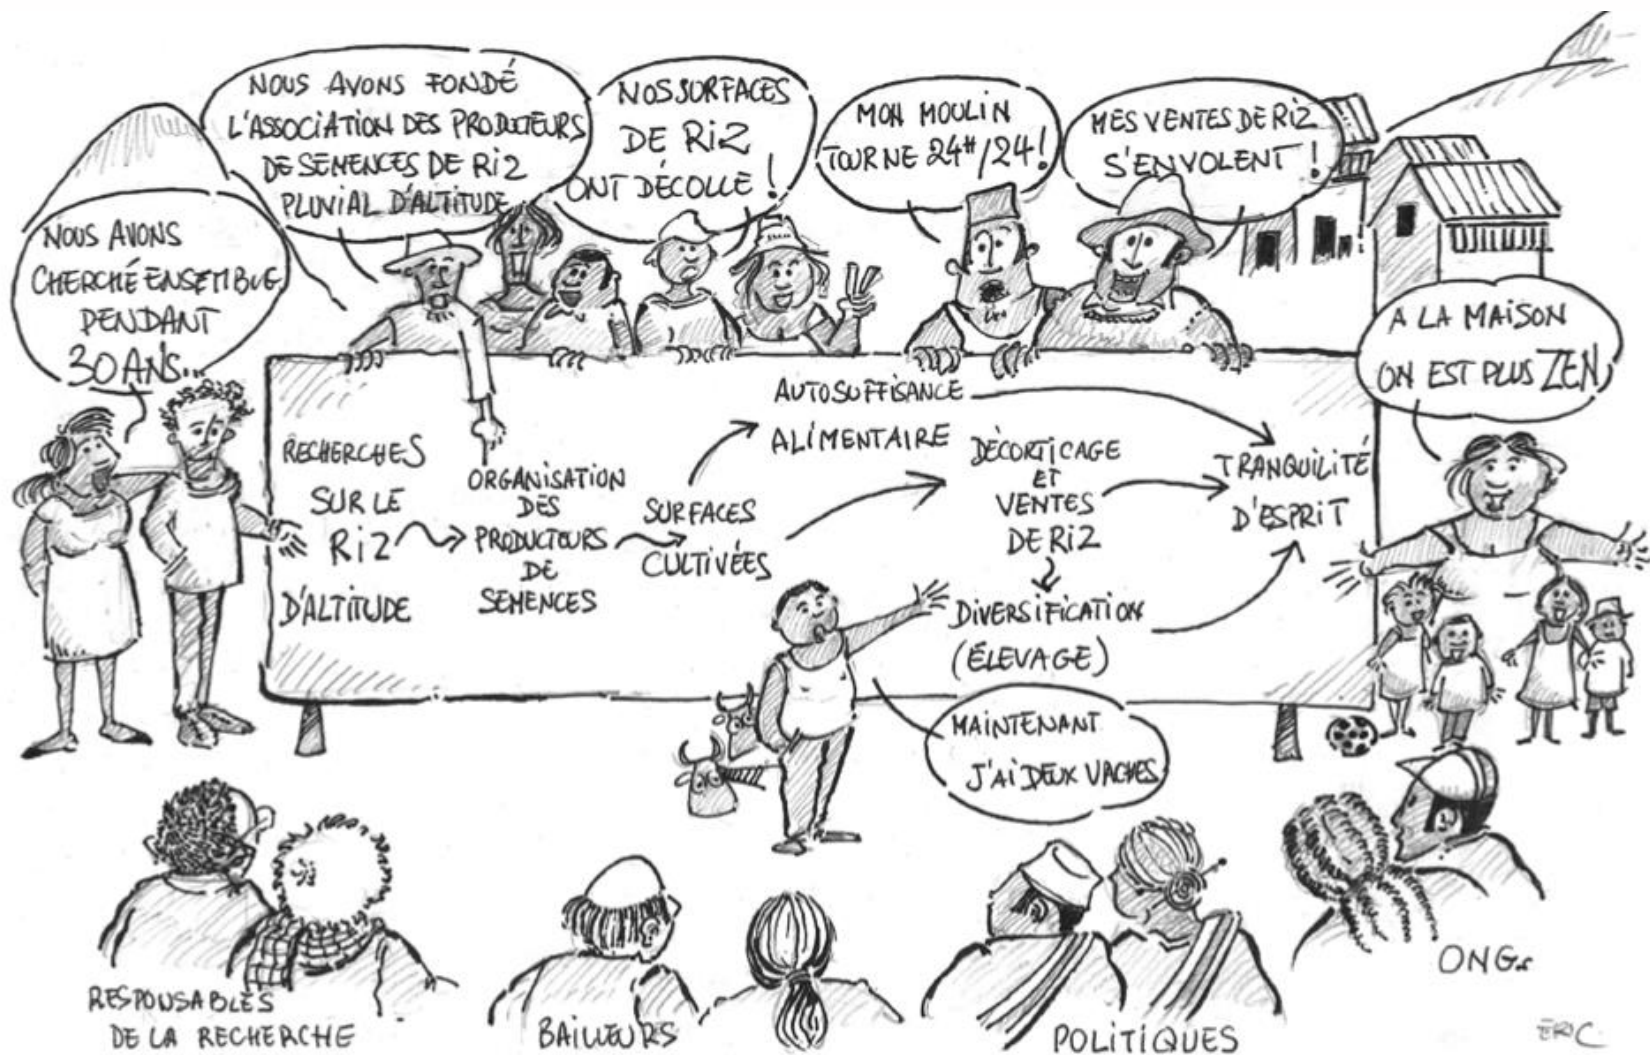 NOUS AVONS FONDÉ
L'ASSOCIATION DES PRODUCTEURS
DE SEMENCES DE RIZ
PLUVIAL D'ALTITUDE
NOS SURFACES
DE RIZ
ONT DÉCOLLÉ !
MON MOULIN
TOURNE 24H/24 !
MES VENTES DE RIZ
S'ENVOLENT !
NOUS AVONS
CHERCHÉ ENSEMBLE
PENDANT
30 ANS...
A LA MAISON
ON EST PLUS ZEN
RECHERCHES
SUR LE
RIZ
D'ALTITUDE
ORGANISATION
DES
PRODUCTEURS
DE
SEMENCES
SURFACES
CULTIVÉES
AUTOSUFFISANCE
ALIMENTAIRE
DÉCORTICAGE
ET
VENTES
DE RIZ
DIVERSIFICATION
(ÉLEVAGE)
TRANQUILITÉ
D'ESPRIT
MAINTENANT
J'AI DEUX VACHES
RESPONSABLES
DE LA RECHERCHE
BAILLEURS
POLITIQUES
ONGs
ÉRIC